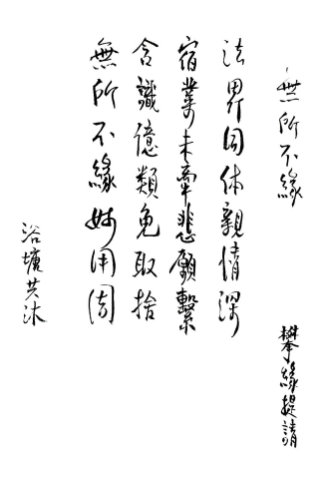 無所不緣
攀緣提請
法界同体親情深
宿業未牽悲願繫
含識億類免取捨
無所不緣妙用周
浴塘共沐